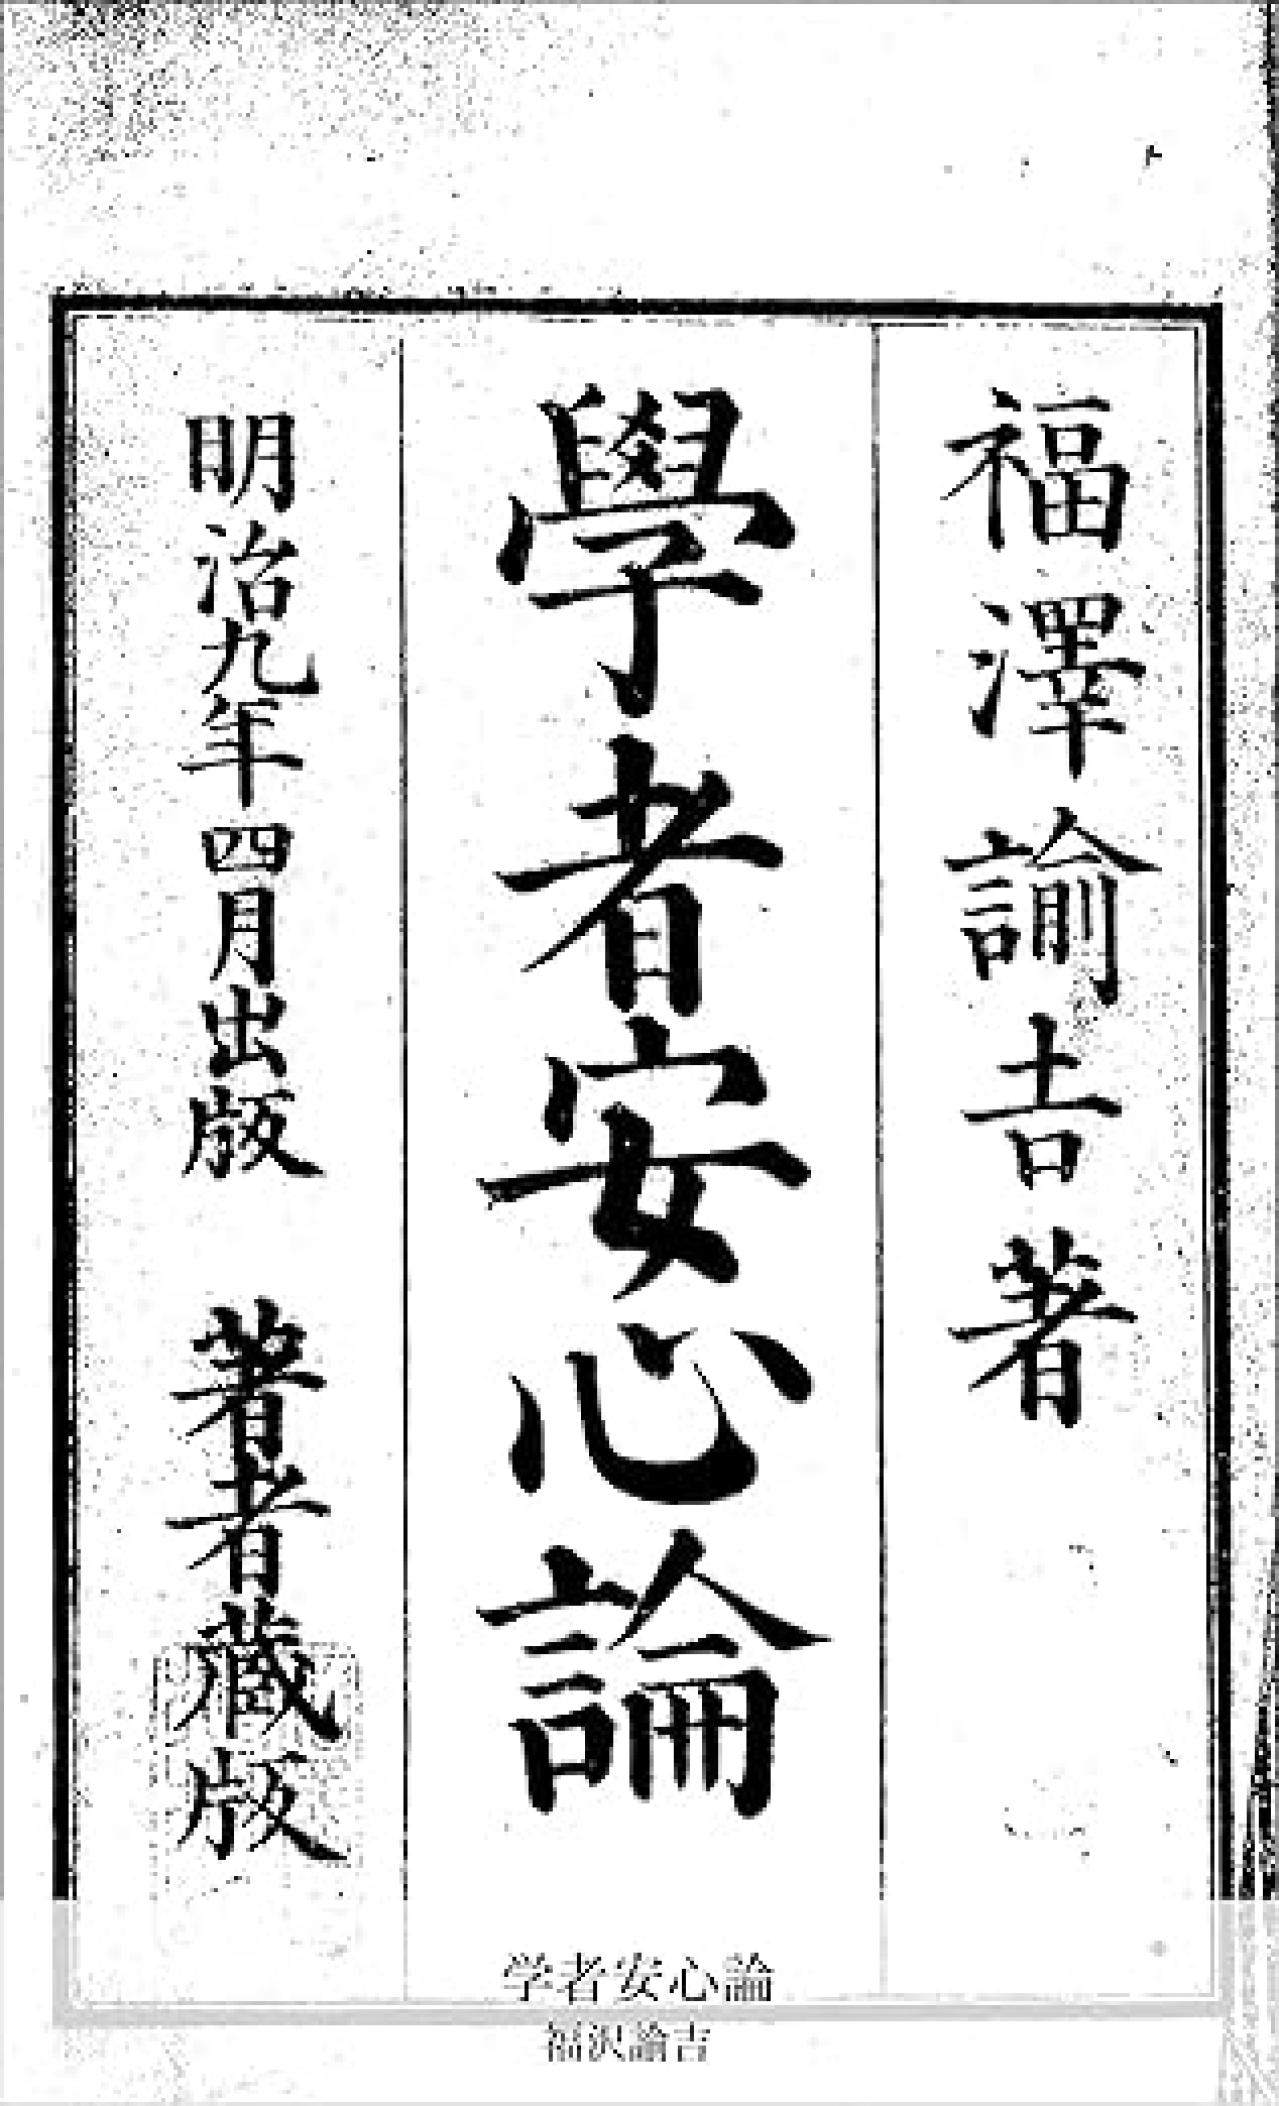 福澤諭吉著
學者安心論
明治九年四月出版 著者藏版
学者安心論
福沢諭吉